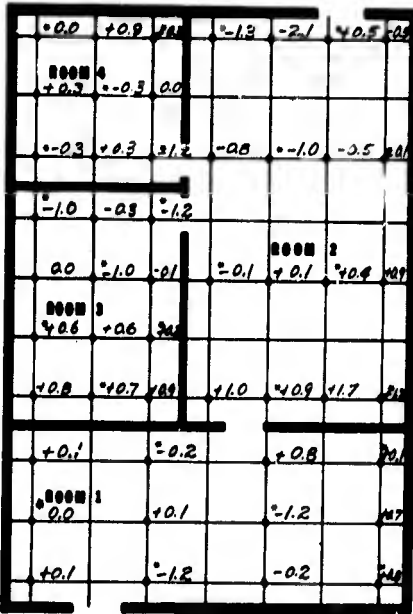 0.0 +0.9 -1.3 -2.1 +0.5
ROOM 4
+0.3 -0.3 0.0
-0.3 +0.3 -0.8 -1.0 -0.5
-1.0 -0.8 -1.2
ROOM 2
0.0 -1.0 -0.1 -0.1 +0.1 +0.4 +0.9
ROOM 3
+0.6 +0.6
+0.8 +0.7 +0.9 +1.0 +0.9 +1.7
+0.1 -0.2 +0.8
ROOM 1
0.0 +0.1 -1.2 +0.7
+0.1 -1.2 -0.2